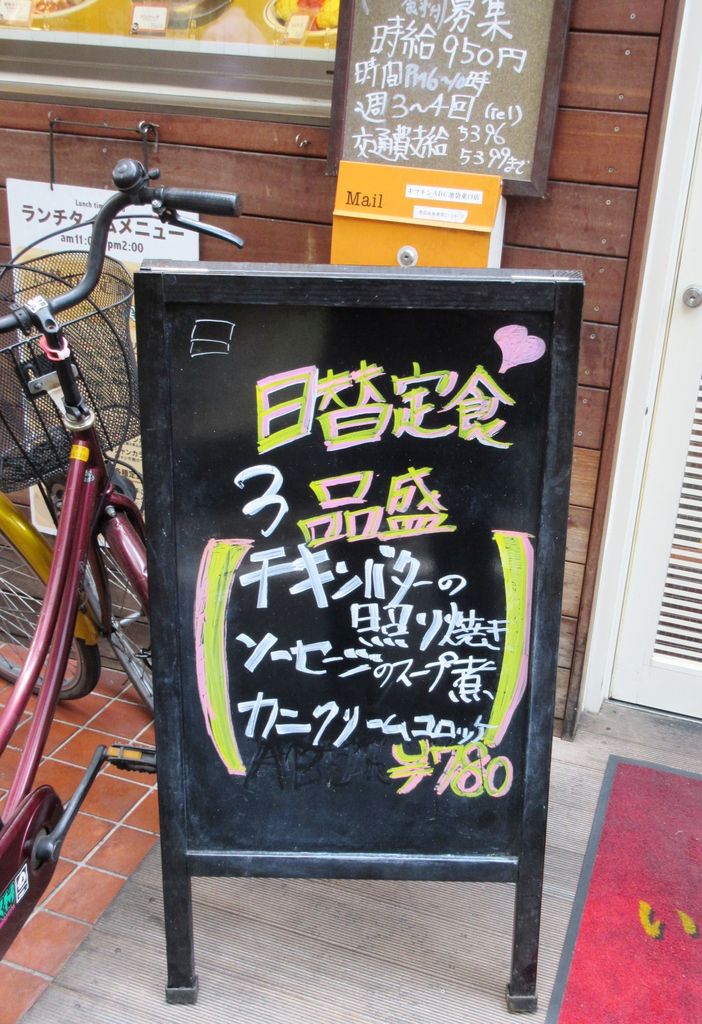 募集
時給950円
時間PM6~10時
週3~4回 (tel)
交通費支給 5396
5399まで
Mail
キッチンABC池袋東口店
Lunch time
ランチタイムメニュー
am11:0 pm2:00
日替定食
3品盛
チキンバターの
照り焼き
ソーセージのスープ煮
カニクリームコロッケ
ABC
¥780
い